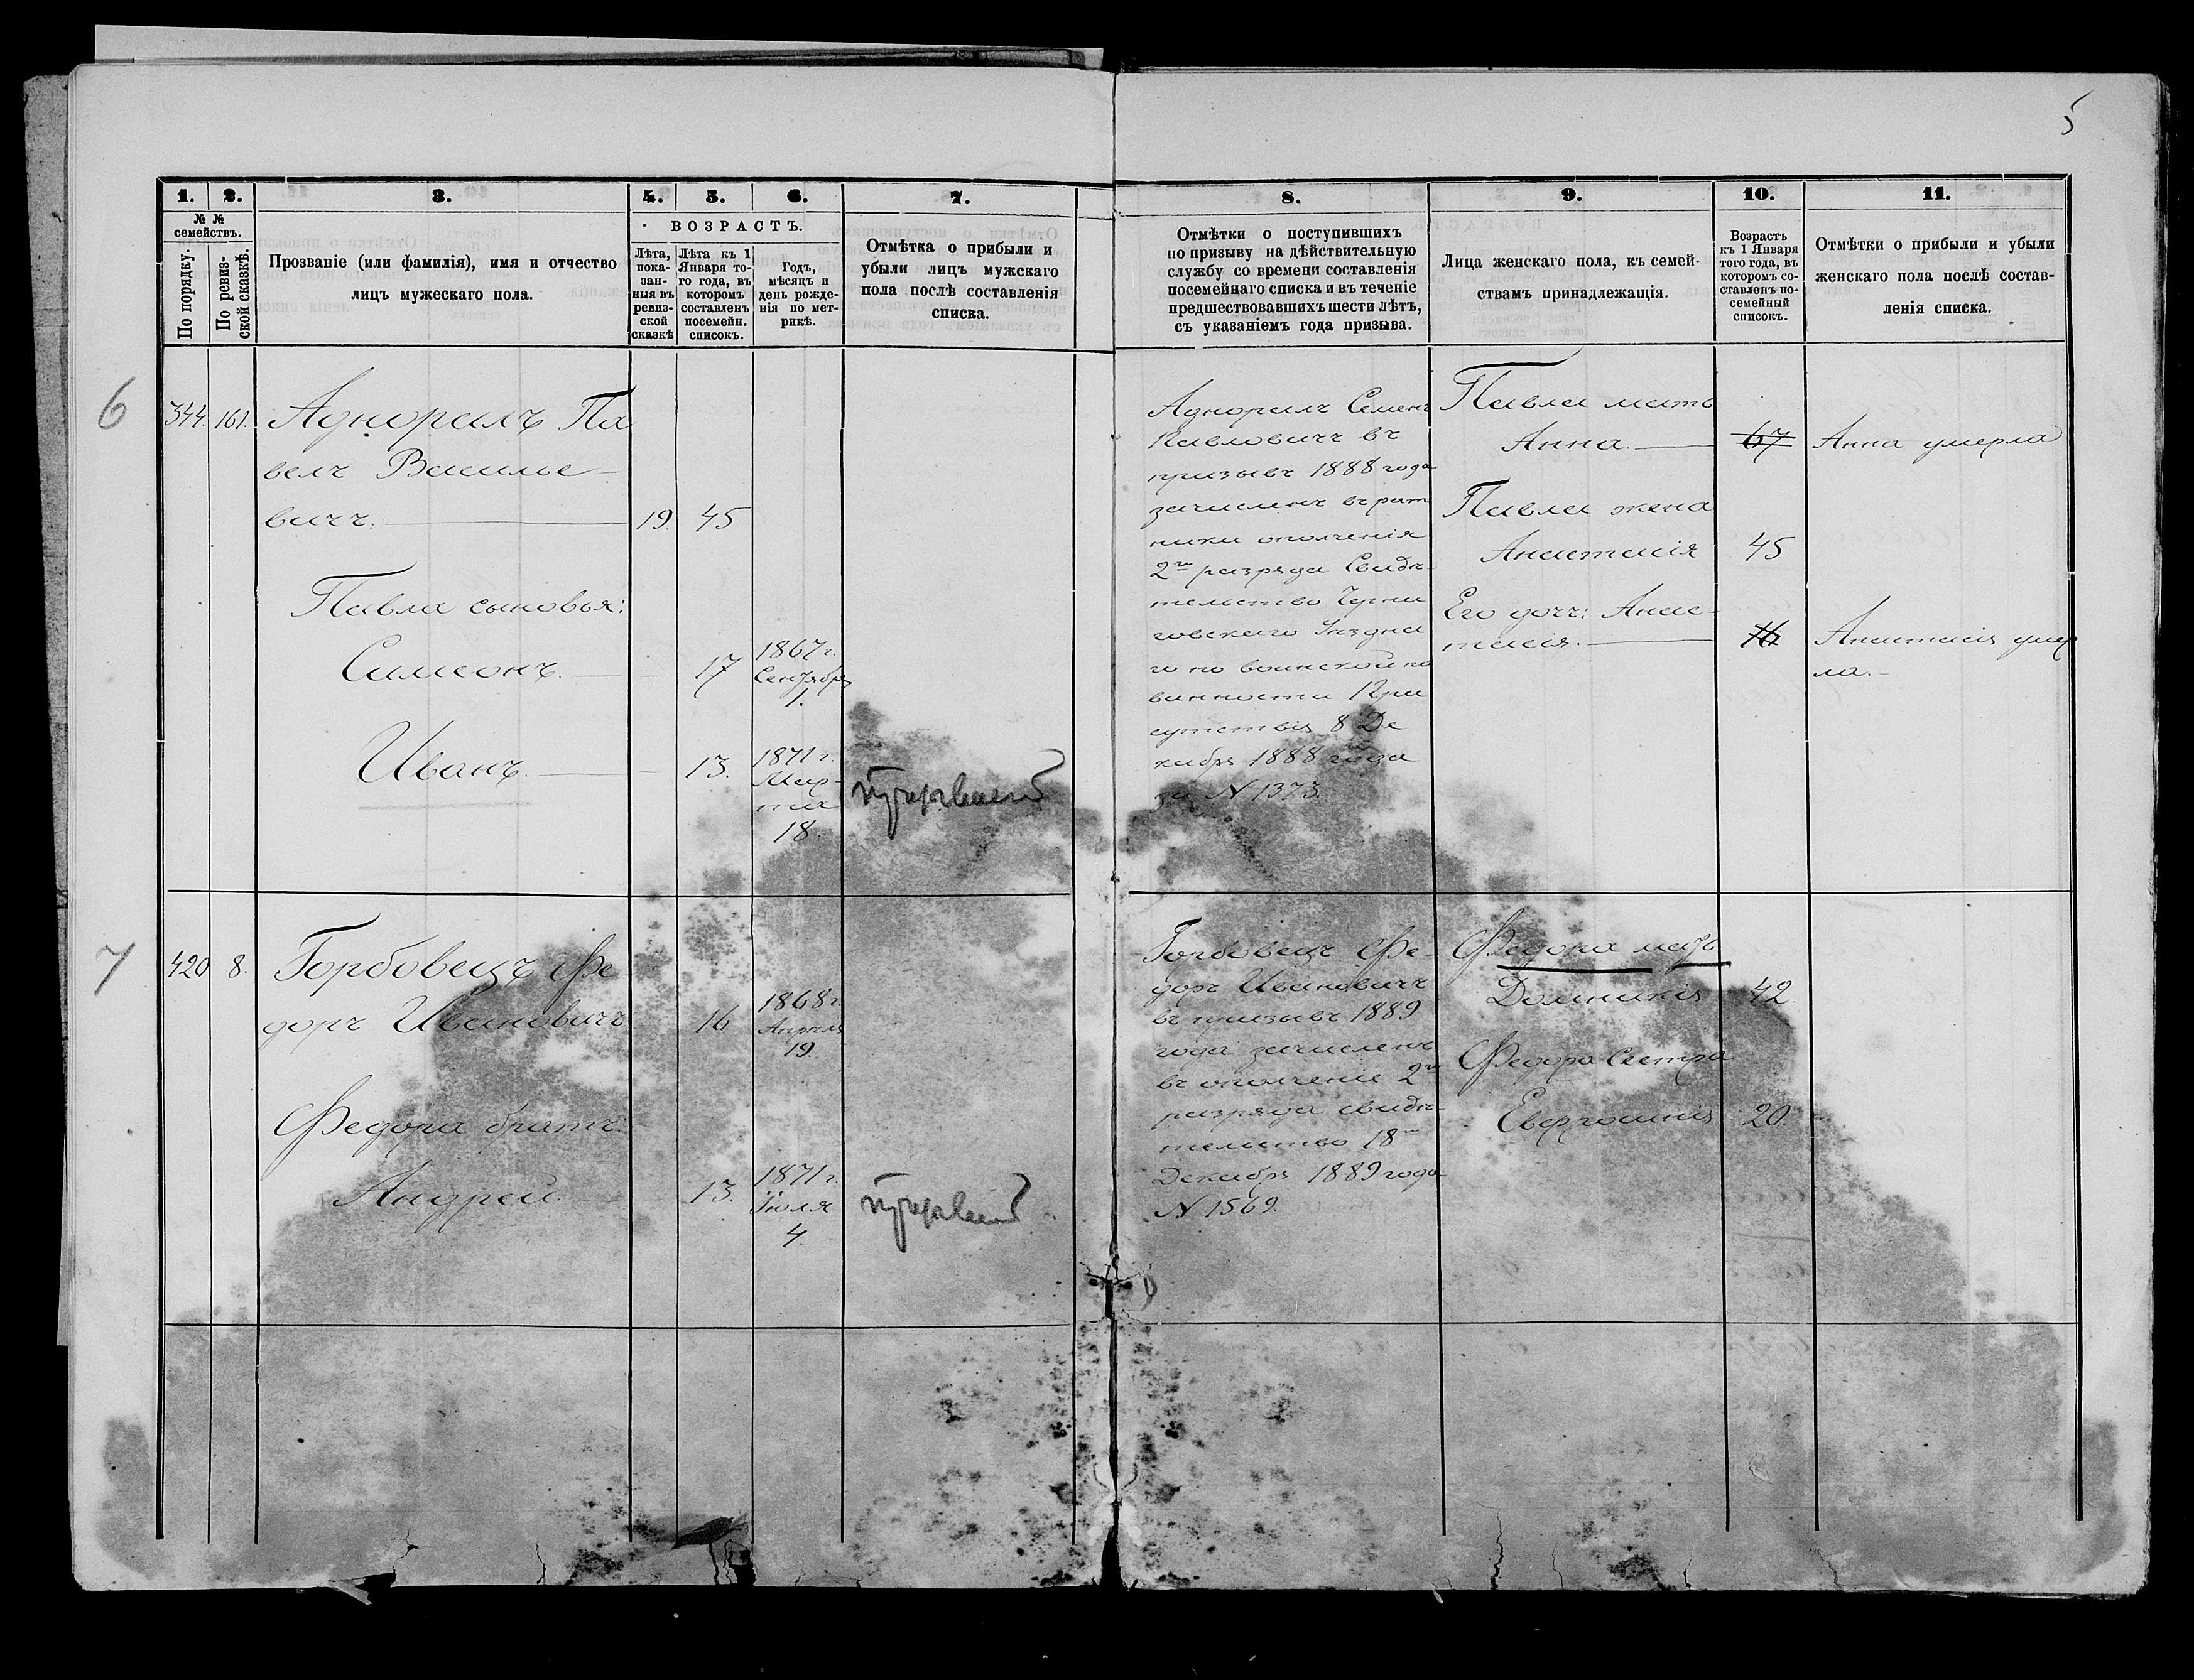 5
1.
2.
3.
4.
5.
6.
7.
8.
9.
10.
11.
№ №
семействъ.
По порядку.
По ревиз-
ской сказкѣ.
Прозваніе (или фамилія), имя и отчество
лицъ мужескаго пола.
ВОЗРАСТЪ.
Лѣта,
пока-
зан-
ныя въ
ревиз-
ской
сказкѣ
Лѣта къ 1
Января то-
го года, въ
которомъ
составленъ
посемейн.
списокъ.
Годъ,
мѣсяцъ и
день рожде-
нія по мет-
рикѣ.
Отмѣтка о прибыли и
убыли лицъ мужскаго
пола послѣ составленія
списка.
Отмѣтки о поступившихъ
по призыву на дѣйствительную
службу со времени составленія
посемейнаго списка и въ теченіе
предшествовавшихъ шести лѣтъ,
съ указаніемъ года призыва.
Лица женскаго пола, къ семей-
ствамъ принадлежащія.
Возрастъ
къ 1 Января
того года, въ
которомъ со-
ставленъ по-
семейный
списокъ.
Отмѣтки о прибыли и убыли
женскаго пола послѣ состав-
ленія списка.
6
344. 161.
Па
велъ Василье
вичъ. 19. 45
Павла сыновья:
Симеонъ. 17
1867 г.
Сентября
1.
Иванъ. 13.
1871 г.
Мар-
та
18.
Семенъ
Павловичъ въ
призывъ 1888 года
зачисленъ въ рат
ники ополченія
2го разряда Свидѣ-
тельство Черни
говскаго Уѣздна
го по воинской по
винности При
сутствія 8 Де
кабря 1888 года
за N 1373.
Павла мать
Анна. 67 Анна умерла
Павла жена
Анастасія 45
Его дочь: Анас-
тасія. 16 Анастасія умер
ла.
7
420 8.
Горбовецъ Фе
доръ Ивановичъ 16
1868 г.
Апрѣля
19.
Федора братъ:
Андрей 13.
1871 г.
Іюля
4.
Горбовецъ Фе-
доръ Ивановичъ
въ призывъ 1889
года зачисленъ
въ ополченіе 2го
разряда свидѣ-
тельство 18го
Декабря 1889 года
N 1569.
Федора мать
Домникія 42.
Федора Сестра
20.